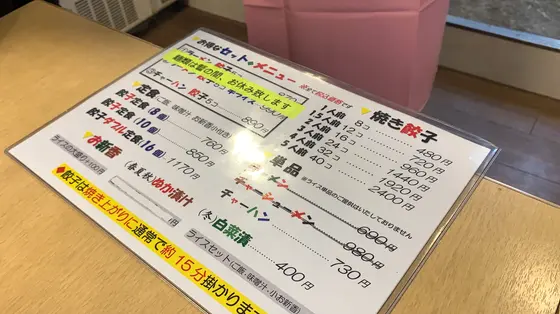 お得なセットメニュー
麺類は暫の間、お休み致します
③チャーハン 餃子5コ 890円
定食(ご飯、味噌汁、お新香小付き)
餃子定食(8個) 760円
餃子定食(10個) 850円
餃子ダブル定食(16個) 1170円
ライスの大盛り+100円
お新香
(春夏秋)ぬか漬け
(冬)白菜漬 400円
焼き餃子
1人前 8コ 480円
1.5人前 12コ 720円
2人前 16コ 960円
3人前 24コ 1440円
4人前 32コ 1920円
5人前 40コ 2400円
単品
※ライス単品のご提供はいたしておりません
ラーメン 690円
チャーシューメン 980円
チャーハン 730円
ライスセット(ご飯・味噌汁・小お新香)
餃子は焼き上がりに通常で約15分掛かります